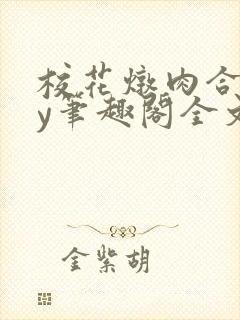 校花燉肉合
y筆趣閣全文
金紫胡